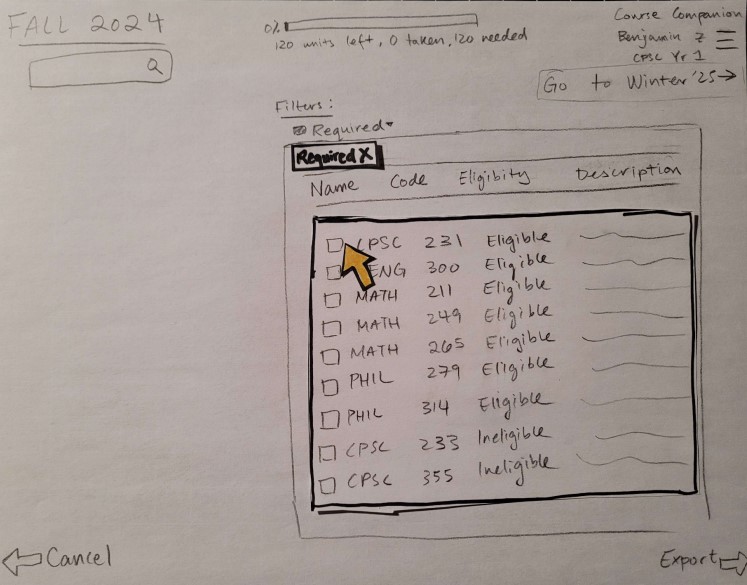 FALL 2024
0%
120 units left, 0 taken, 120 needed
Course Companion
Benjamin Z
CPSC Yr 1
Go to Winter '25
Filters:
Required
Required X
Name Code Eligibity Description
CPSC 231 Eligible
ENG 300 Eligible
MATH 211 Eligible
MATH 249 Eligible
MATH 265 Eligible
PHIL 279 Eligible
PHIL 314 Eligible
CPSC 233 Ineligible
CPSC 355 Ineligible
Cancel
Export